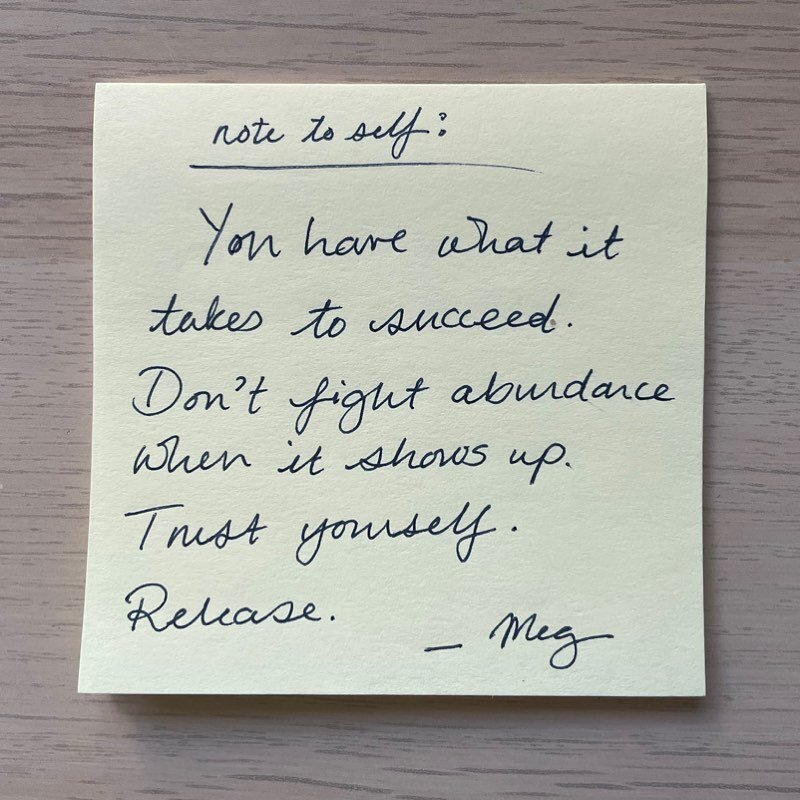 note to self:
You have what it
takes to succeed.
Don't fight abundance
when it shows up.
Trust yourself.
Release.
— Meg